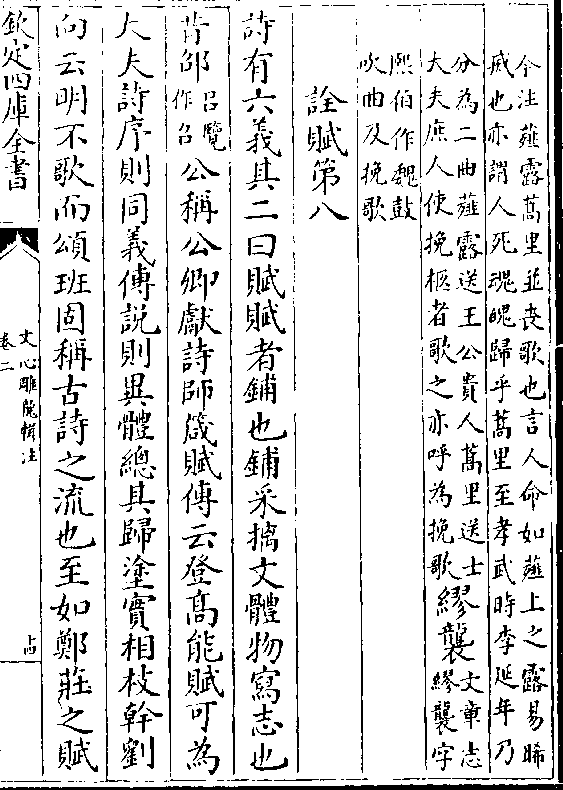 今注薤露蒿里並丧歌也言人命如薤上之露易晞
滅也亦謂人死魂魄歸乎蒿里至孝武時李延年乃
分為二曲薤露送王公貴人蒿里送士
大夫庶人使挽柩者歌之亦呼為挽歌
繆襲
文章志
繆襲字
熙伯作魏鼓
吹曲及挽歌
詮賦第八
詩有六義其二曰賦賦者鋪也鋪采摛文體物寫志也
昔邵吕覽作召公稱公卿獻詩師箴賦傳云登髙能賦可為
大夫詩序則同義傳說則異體總其歸塗實相枝幹劉
向云明不歌而頌班固稱古詩之流也至如鄭莊之賦
欽定四庫全書
文心雕龍輯注
卷二
十四